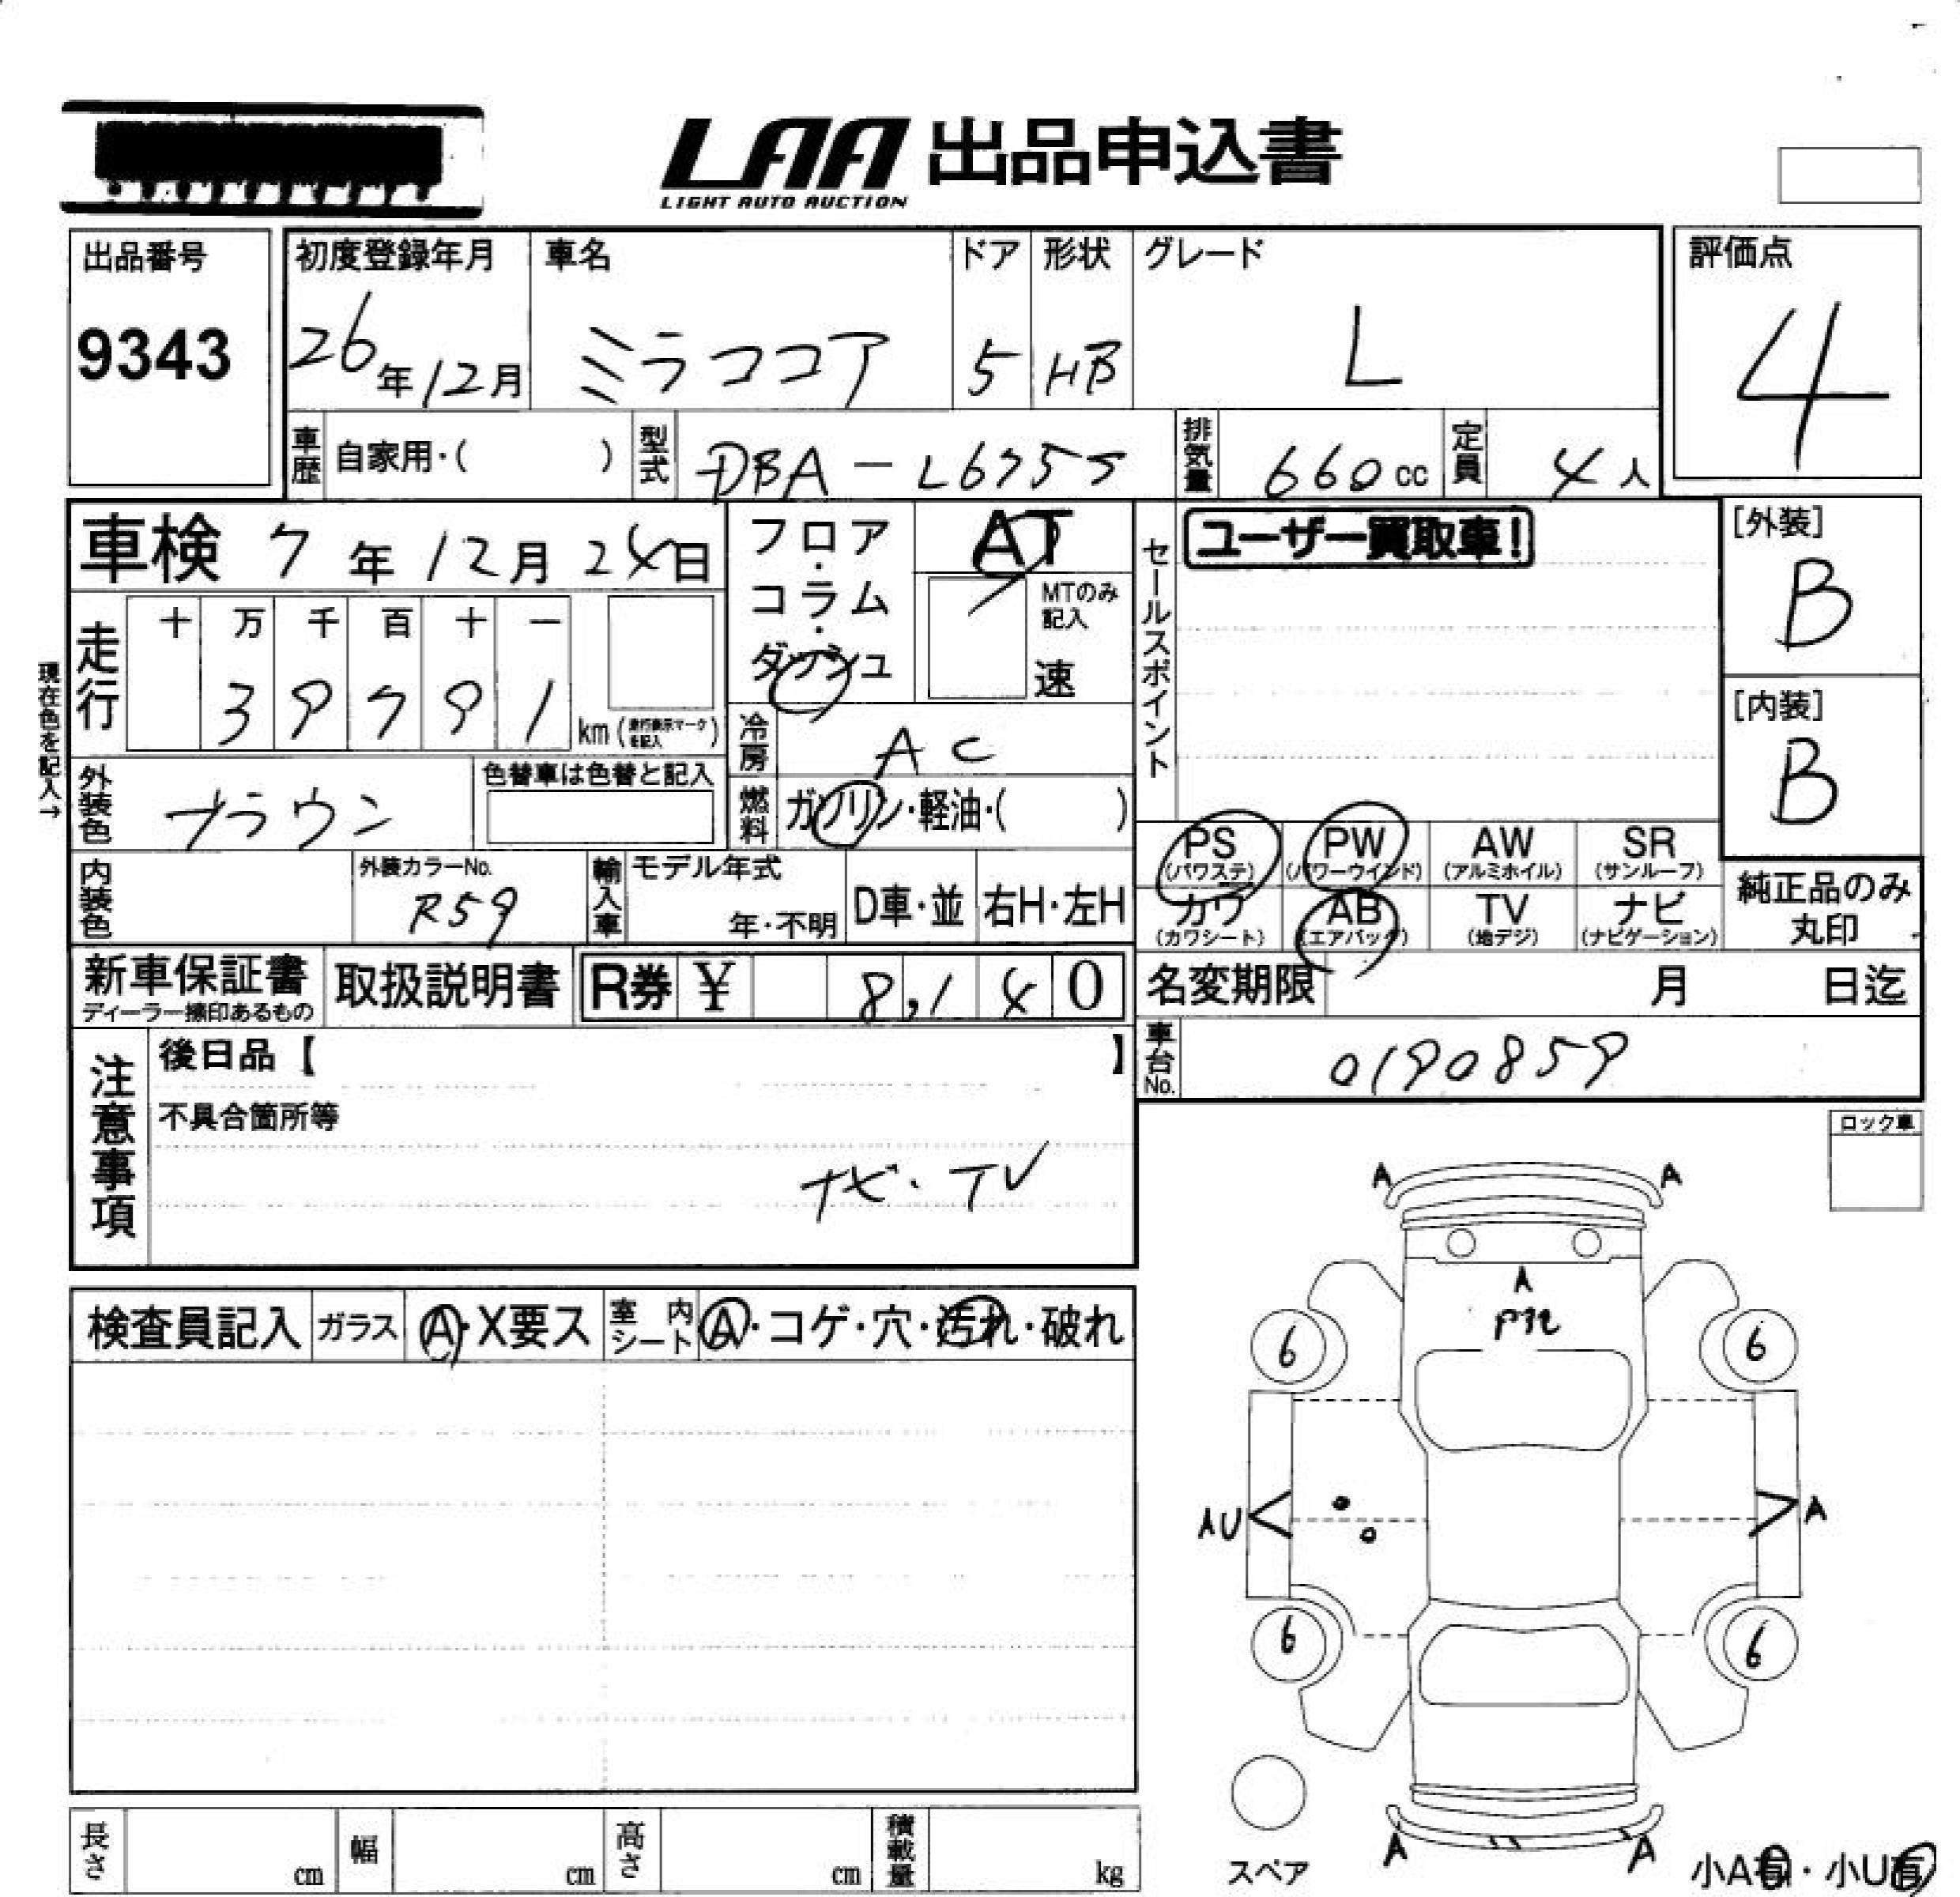 LAA 出品申込書
LIGHT AUTO AUCTION
出品番号
9343
初度登録年月
26年12月
車名
ミラココア
ドア
5
形状
HB
グレード
L
評価点
4
車歴 自家用・( )
型式 DBA-L675S
排気量 660cc
定員 4人
車検 7年12月24日
フロア・コラム・ダッシュ
AT
MTのみ記入
速
セールスポイント
ユーザー買取車!
[外装]
B
[内装]
B
現在色を記入→
走行
十 万 千 百 十 一
3 9 7 9 1
km(走行表示マークを記入)
冷房 AC
燃料 ガソリン・軽油・( )
外装色 ブラウン
色替車は色替と記入
内装色
外装カラーNo.
R59
輸入車
モデル年式
年・不明
D車・並
右H・左H
PS (パワステ)
PW (パワーウインド)
AW (アルミホイル)
SR (サンルーフ)
カワ (カワシート)
AB (エアバッグ)
TV (地デジ)
ナビ (ナビゲーション)
純正品のみ
丸印
新車保証書
ディーラー捺印あるもの
取扱説明書
R券 ¥ 8,140
名変期限 月 日迄
車台No. 0190859
注意事項
後日品【 】
不具合箇所等
ナビ・TV
ロック車
検査員記入
ガラス A・X要ス
室内シート A・コゲ・穴・汚れ・破れ
A A
A
6 6
AU A
6 6
A A
スペア
小A有・小U有
長さ cm
幅 cm
高さ cm
積載量 kg